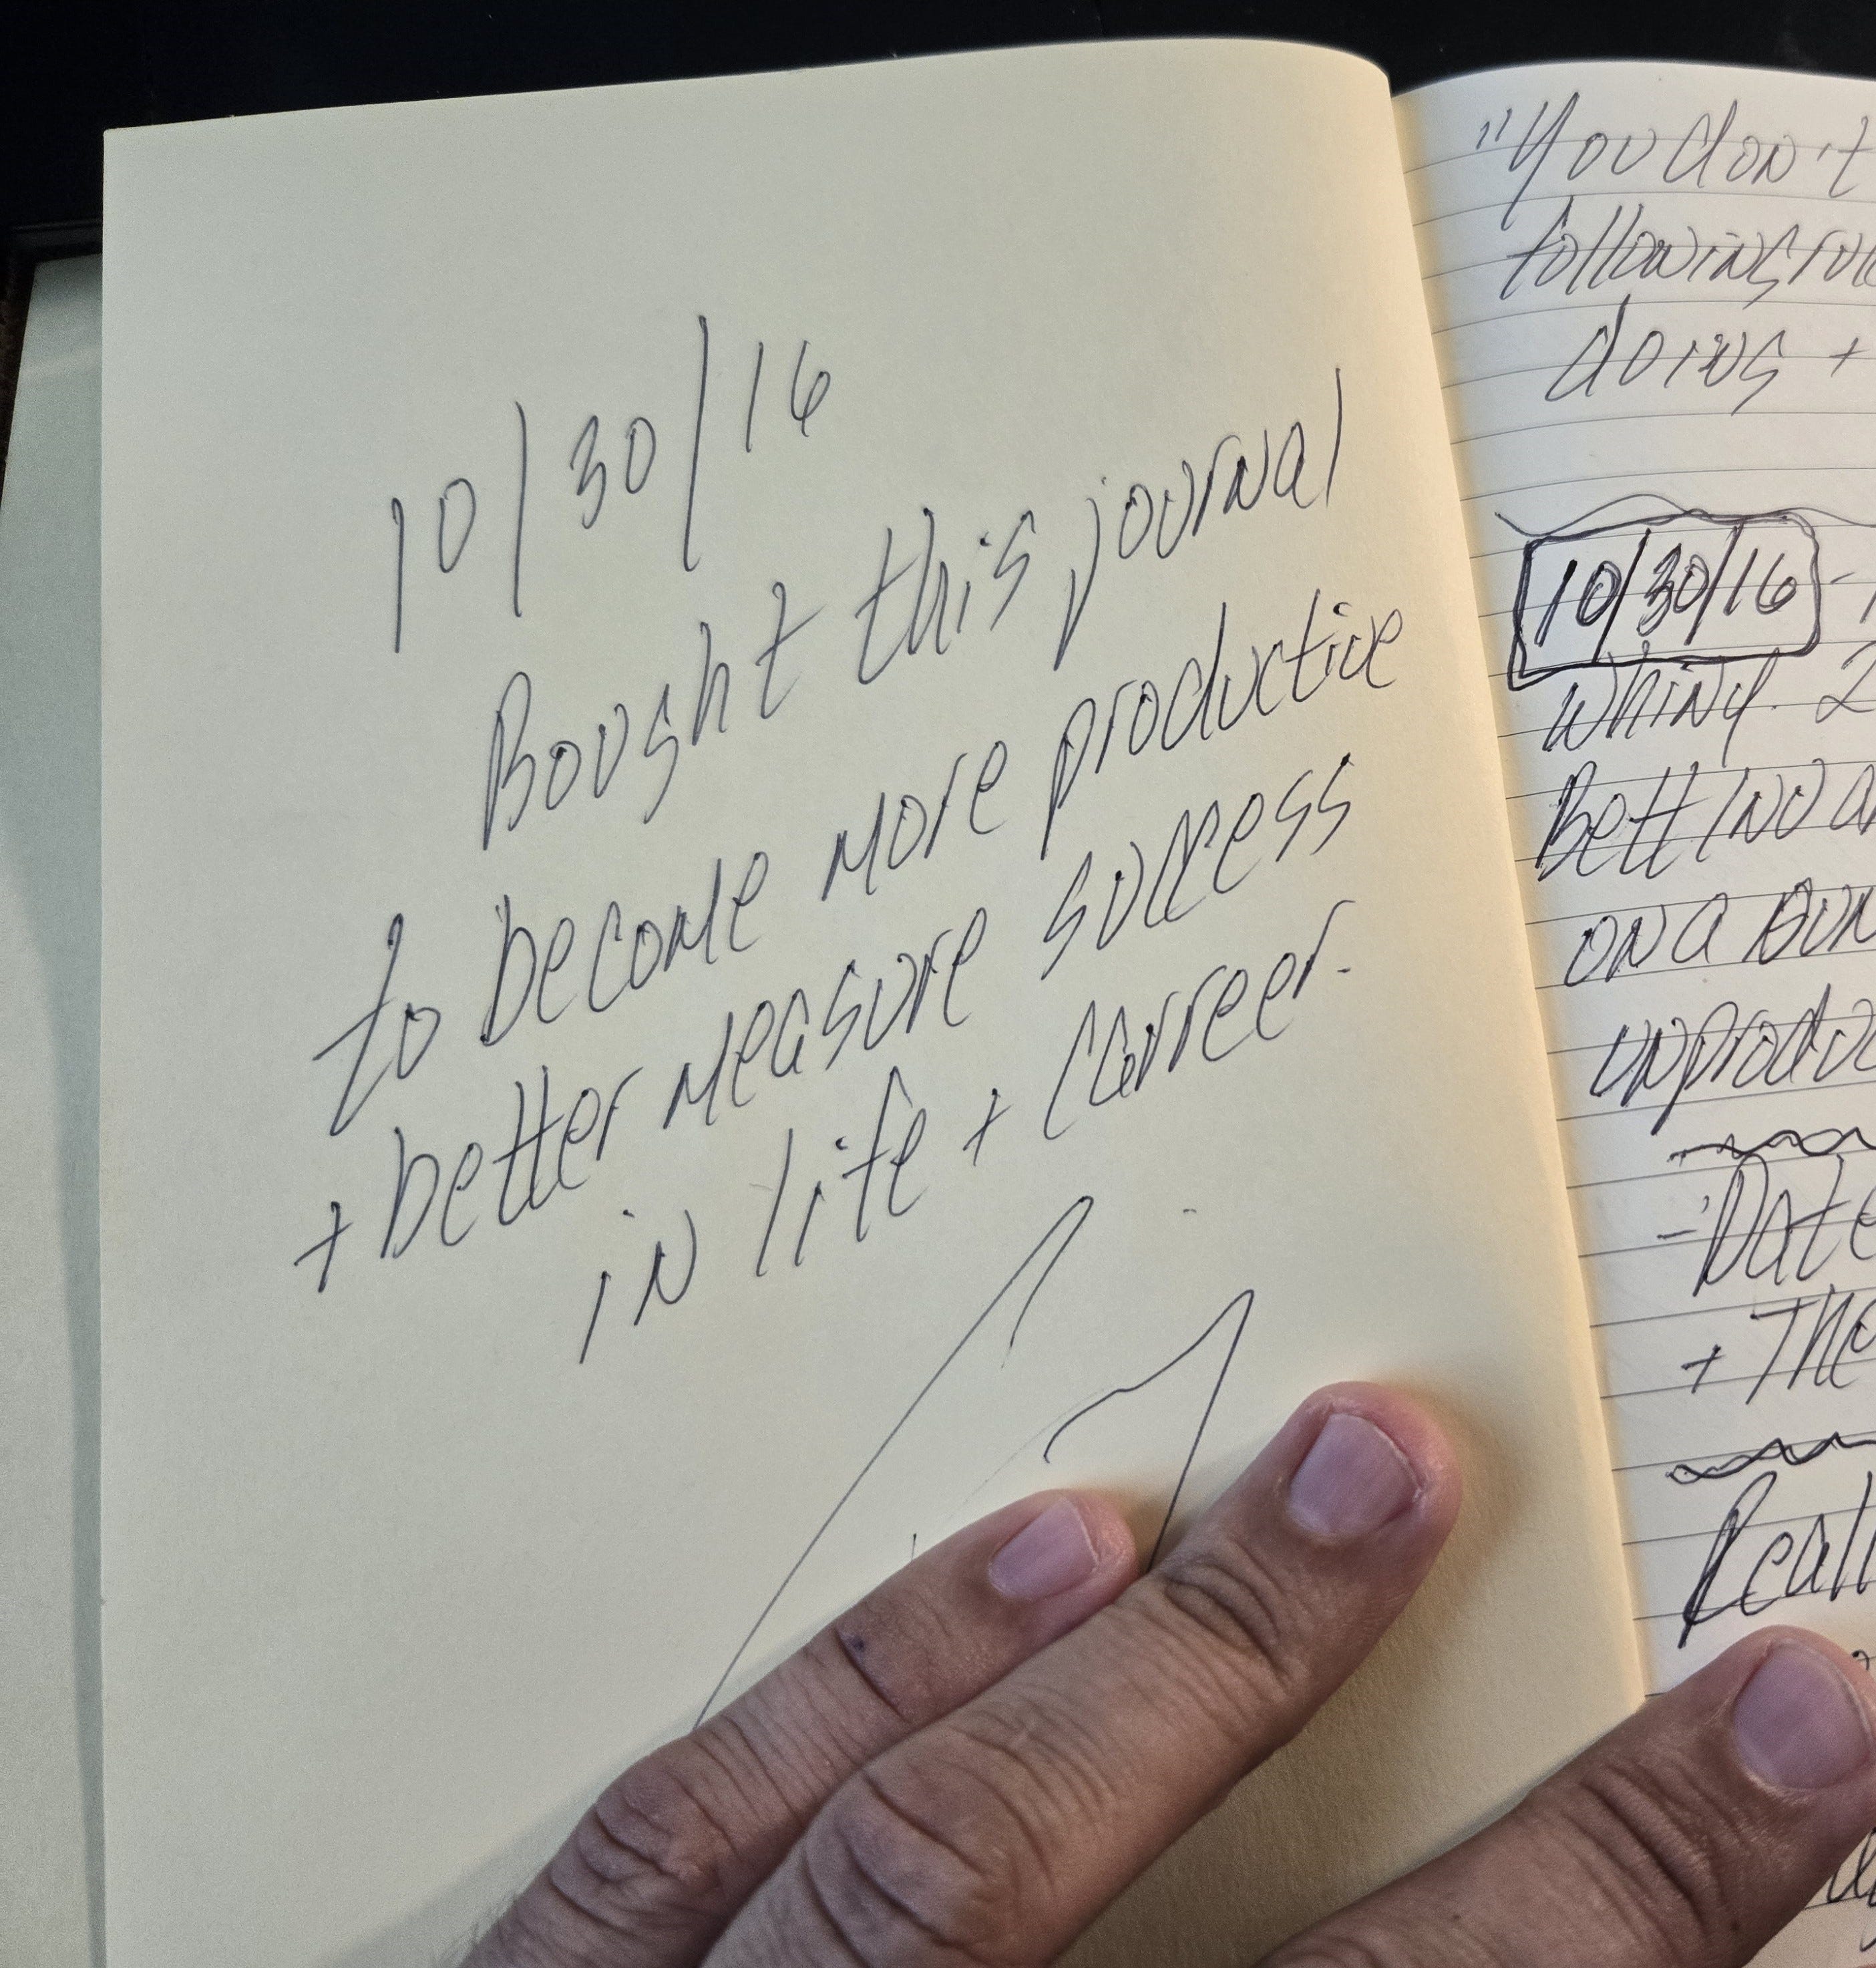 10/30/16
Bought this journal
to become more productive
+ better measure success
in life + Carreer.
"You don't
following
doing +
10/30/16 -
whiny. 2
on a
- Date
+ The